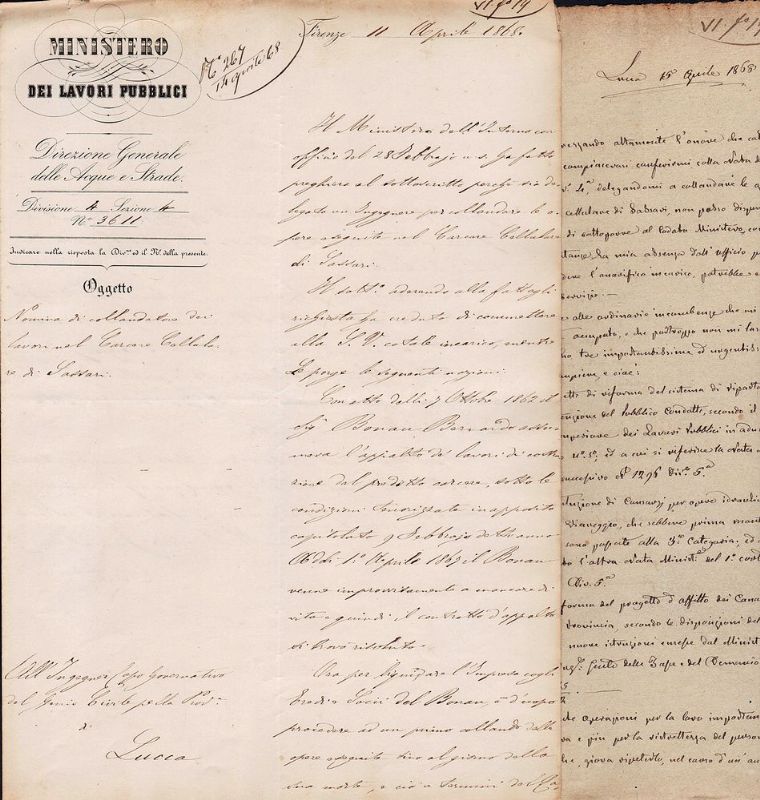 VI. fo 19
MINISTERO
DEI LAVORI PUBBLICI
Direzione Generale
delle Acque e Strade.
Divisione 4 Sezione 4
N° 3611
Indicare nella risposta la Div.ne ed il N.° della presente.
Oggetto
Nomina di collaudatore dei
lavori nel Carcere Cellula-
re di Sassari.
All' Ingegnere Capo Governativo
del Genio Civile per la Prov.a
di
Lucca
N° 267
14 aprile 68
Firenze 11 Aprile 1868.
Il Ministero dell' Interno con
officio del 28 Febbrajo u. s. ha fatto
preghiera al sottoscritto perché sia de-
legato un Ingegnere per collaudare le o-
pere eseguite nel Carcere Cellulare
di Sassari.
Il sott.° aderendo alla fattagli
richiesta ha creduto di commettere
alla S. V. cotale incarico, mentre
Le porge le seguenti nozioni.
Con atto delli 7 Ottobre 1862 il
Sig. Bonau Bernardo assu-
meva l'appalto de' lavori di costru-
zione del predetto carcere, sotto le
condizioni in apposito
capitolato 9 Febbrajo detto anno
Addì 1.° Aprile 1867 il Bonau
venne improvvisamente a mancare di
vita e quindi il contratto d'appalto
si trovò risoluto.
Ora per liquidare l'Impresa cogli
Eredi e Socii del Bonau, è d'uopo
procedere ad un primo collaudo delle
opere eseguite fino al giorno della
sua morte, e ciò a termini del Ca-
VI. fo 19
Lucca 15 Aprile 1868
altamente l'onore che
compiacevasi conferirmi colla Nota
delegandomi a collaudare le
di Sassari, non posso
di sottoporre al lodato Ministero, co
la mia assenza dall' ufficio p
l'onorifico incarico, potrebbe e
servizio.—
alle ordinarie incombenze che mi
e che purtroppo non mi las
tre importantissime ed urgentis:
e cioè:
di riforma del sistema di riparto
del Pubblico Condotto, secondo il
dei Lavori Pubblici in
ed a cui si riferisce la Nota
successivo N° 1296 Div. 5.a
di per opere idrauli
Viareggio, che sebbene prima
sono passate alla 3.a Categoria, ed
l'altra Nota Minist. del 1.°
Div. 5.a
del progetto d'affitto dei Cana
Provincia, secondo le disposizioni del
nuove istruzioni emesse dal Minist
delle Tasse e del Demanio
operazioni per la loro importan
e più per la ristrettezza del perso
giova ripeterlo, nel caso d'un